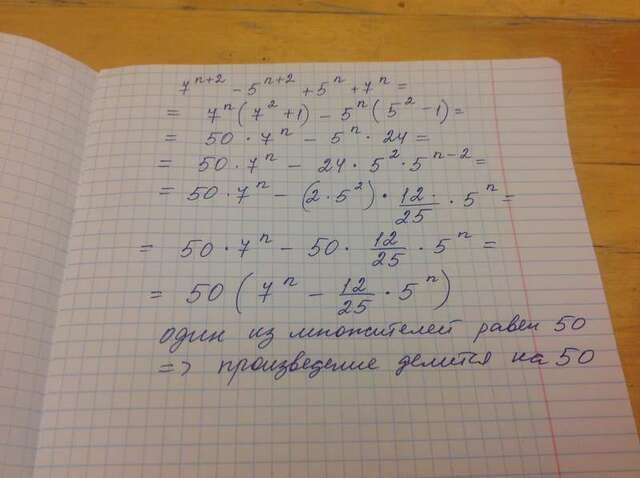 7ⁿ⁺² - 5ⁿ⁺² + 5ⁿ + 7ⁿ =
= 7ⁿ(7² + 1) - 5ⁿ(5² - 1) =
= 50 · 7ⁿ - 5ⁿ · 24 =
= 50 · 7ⁿ - 24 · 5² · 5ⁿ⁻² =
= 50 · 7ⁿ - (2 · 5²) · 12/25 · 5ⁿ =
= 50 · 7ⁿ - 50 · 12/25 · 5ⁿ =
= 50 (7ⁿ - 12/25 · 5ⁿ)
один из множителей равен 50
=> произведение делится на 50